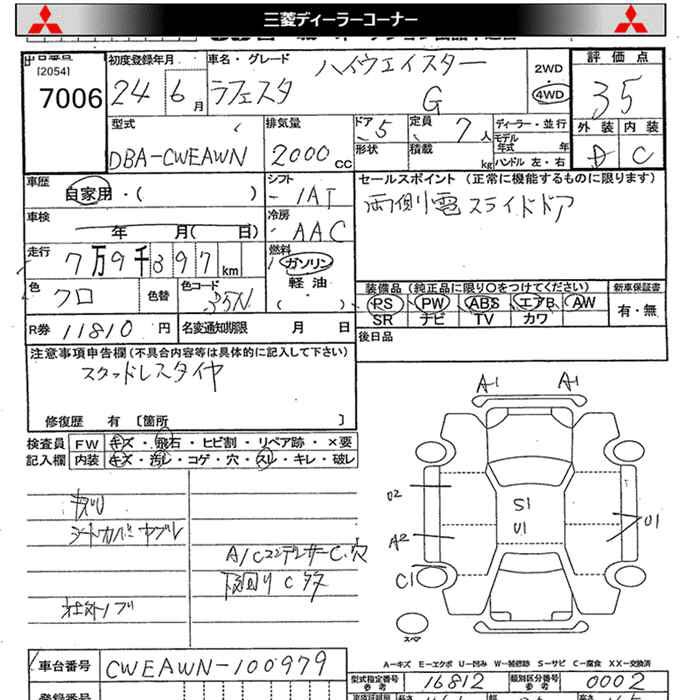 三菱ディーラーコーナー
[2054]
7006
初度登録年月
24 6月
車名・グレード
ラフェスタ ハイウェイスター G
2WD
4WD
評価点
35
型式
DBA-CWEAWN
排気量
2000 CC
ドア 5
形状
定員 7人
積載 kg
ディーラー・並行
モデル年式 年
ハンドル 左・右
外装 内装
D C
車歴
自家用・( )
シフト
IAT
セールスポイント (正常に機能するものに限ります)
両側電スライドドア
車検
年 月( 日)
冷房
AAC
走行
7万9千397km
燃料
ガソリン
軽油
( )
色
クロ
色替
色コード
35N
装備品 (純正品に限り○をつけてください)
PS PW ABS エアB AW
SR ナビ TV カワ
新車保証書
有・無
R券 11810円
名変通知期限 月 日
後日品
注意事項申告欄(不具合内容等は具体的に記入して下さい)
スタッドレスタイヤ
修復歴 有 [箇所 ]
検査員 FW キズ・飛石・ヒビ割・リペア跡・×要
記入欄 内装 キズ・汚レ・コゲ・穴・スレ・キレ・破レ
シートカバーヤブレ
A/Cコンデンサー C.穴
下回り C
社外ノブ
A1 A1
U2
S1
U1
U1
A2
C1
スペア
車台番号 CWEAWN-100979
A-キズ E-エクボ U-凹み W-補修跡 S-サビ C-腐食 XX-交換済
型式指定番号 参考 16812
類別区分番号 参考 0002